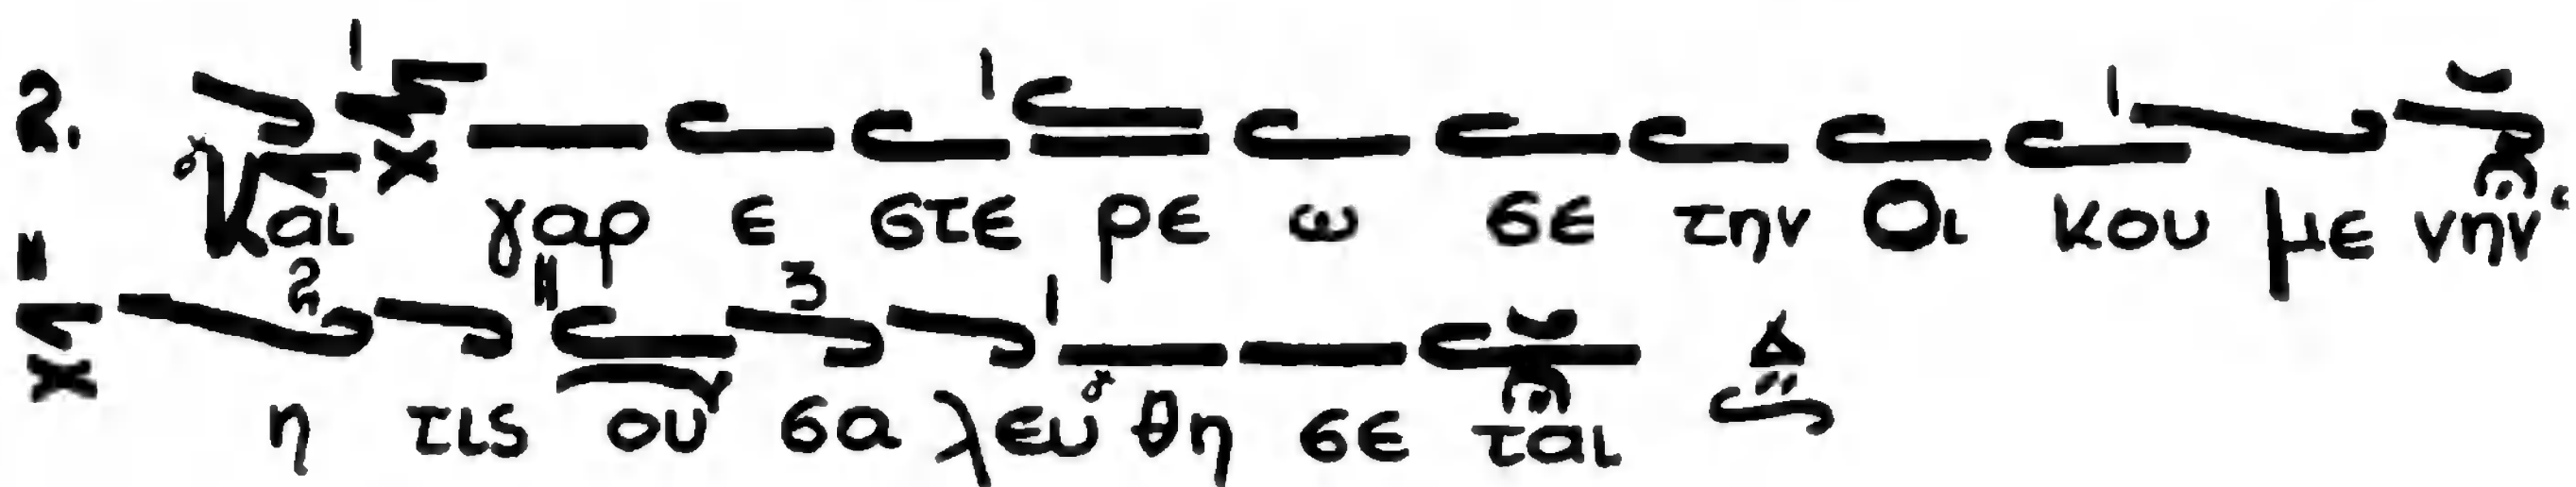 2. Και γαρ ε στε ρε ω σε την Οι κου με νην·
η τις ου σα λευ θη σε ται Δ